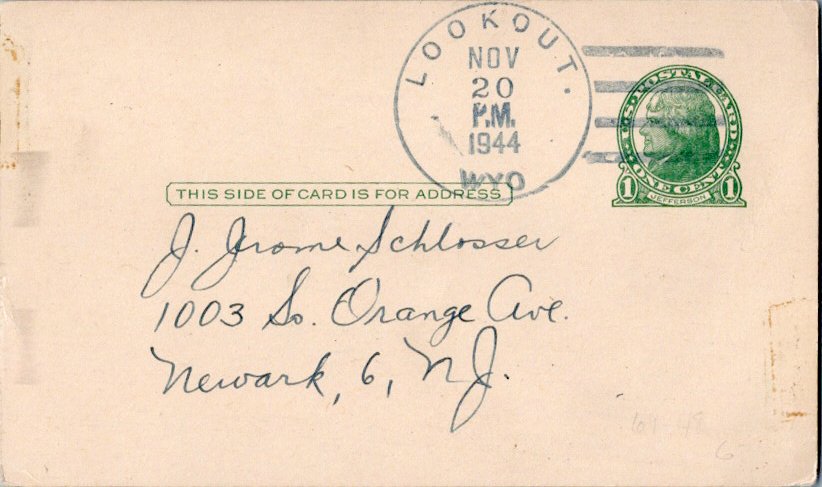 LOOKOUT.
NOV
20
P.M.
1944
WYO
U.S. POSTAL CARD
1 ONE CENT 1
JEFFERSON
THIS SIDE OF CARD IS FOR ADDRESS
J. Jrome Schlosser
1003 So. Orange Ave.
Newark, 6, NJ.